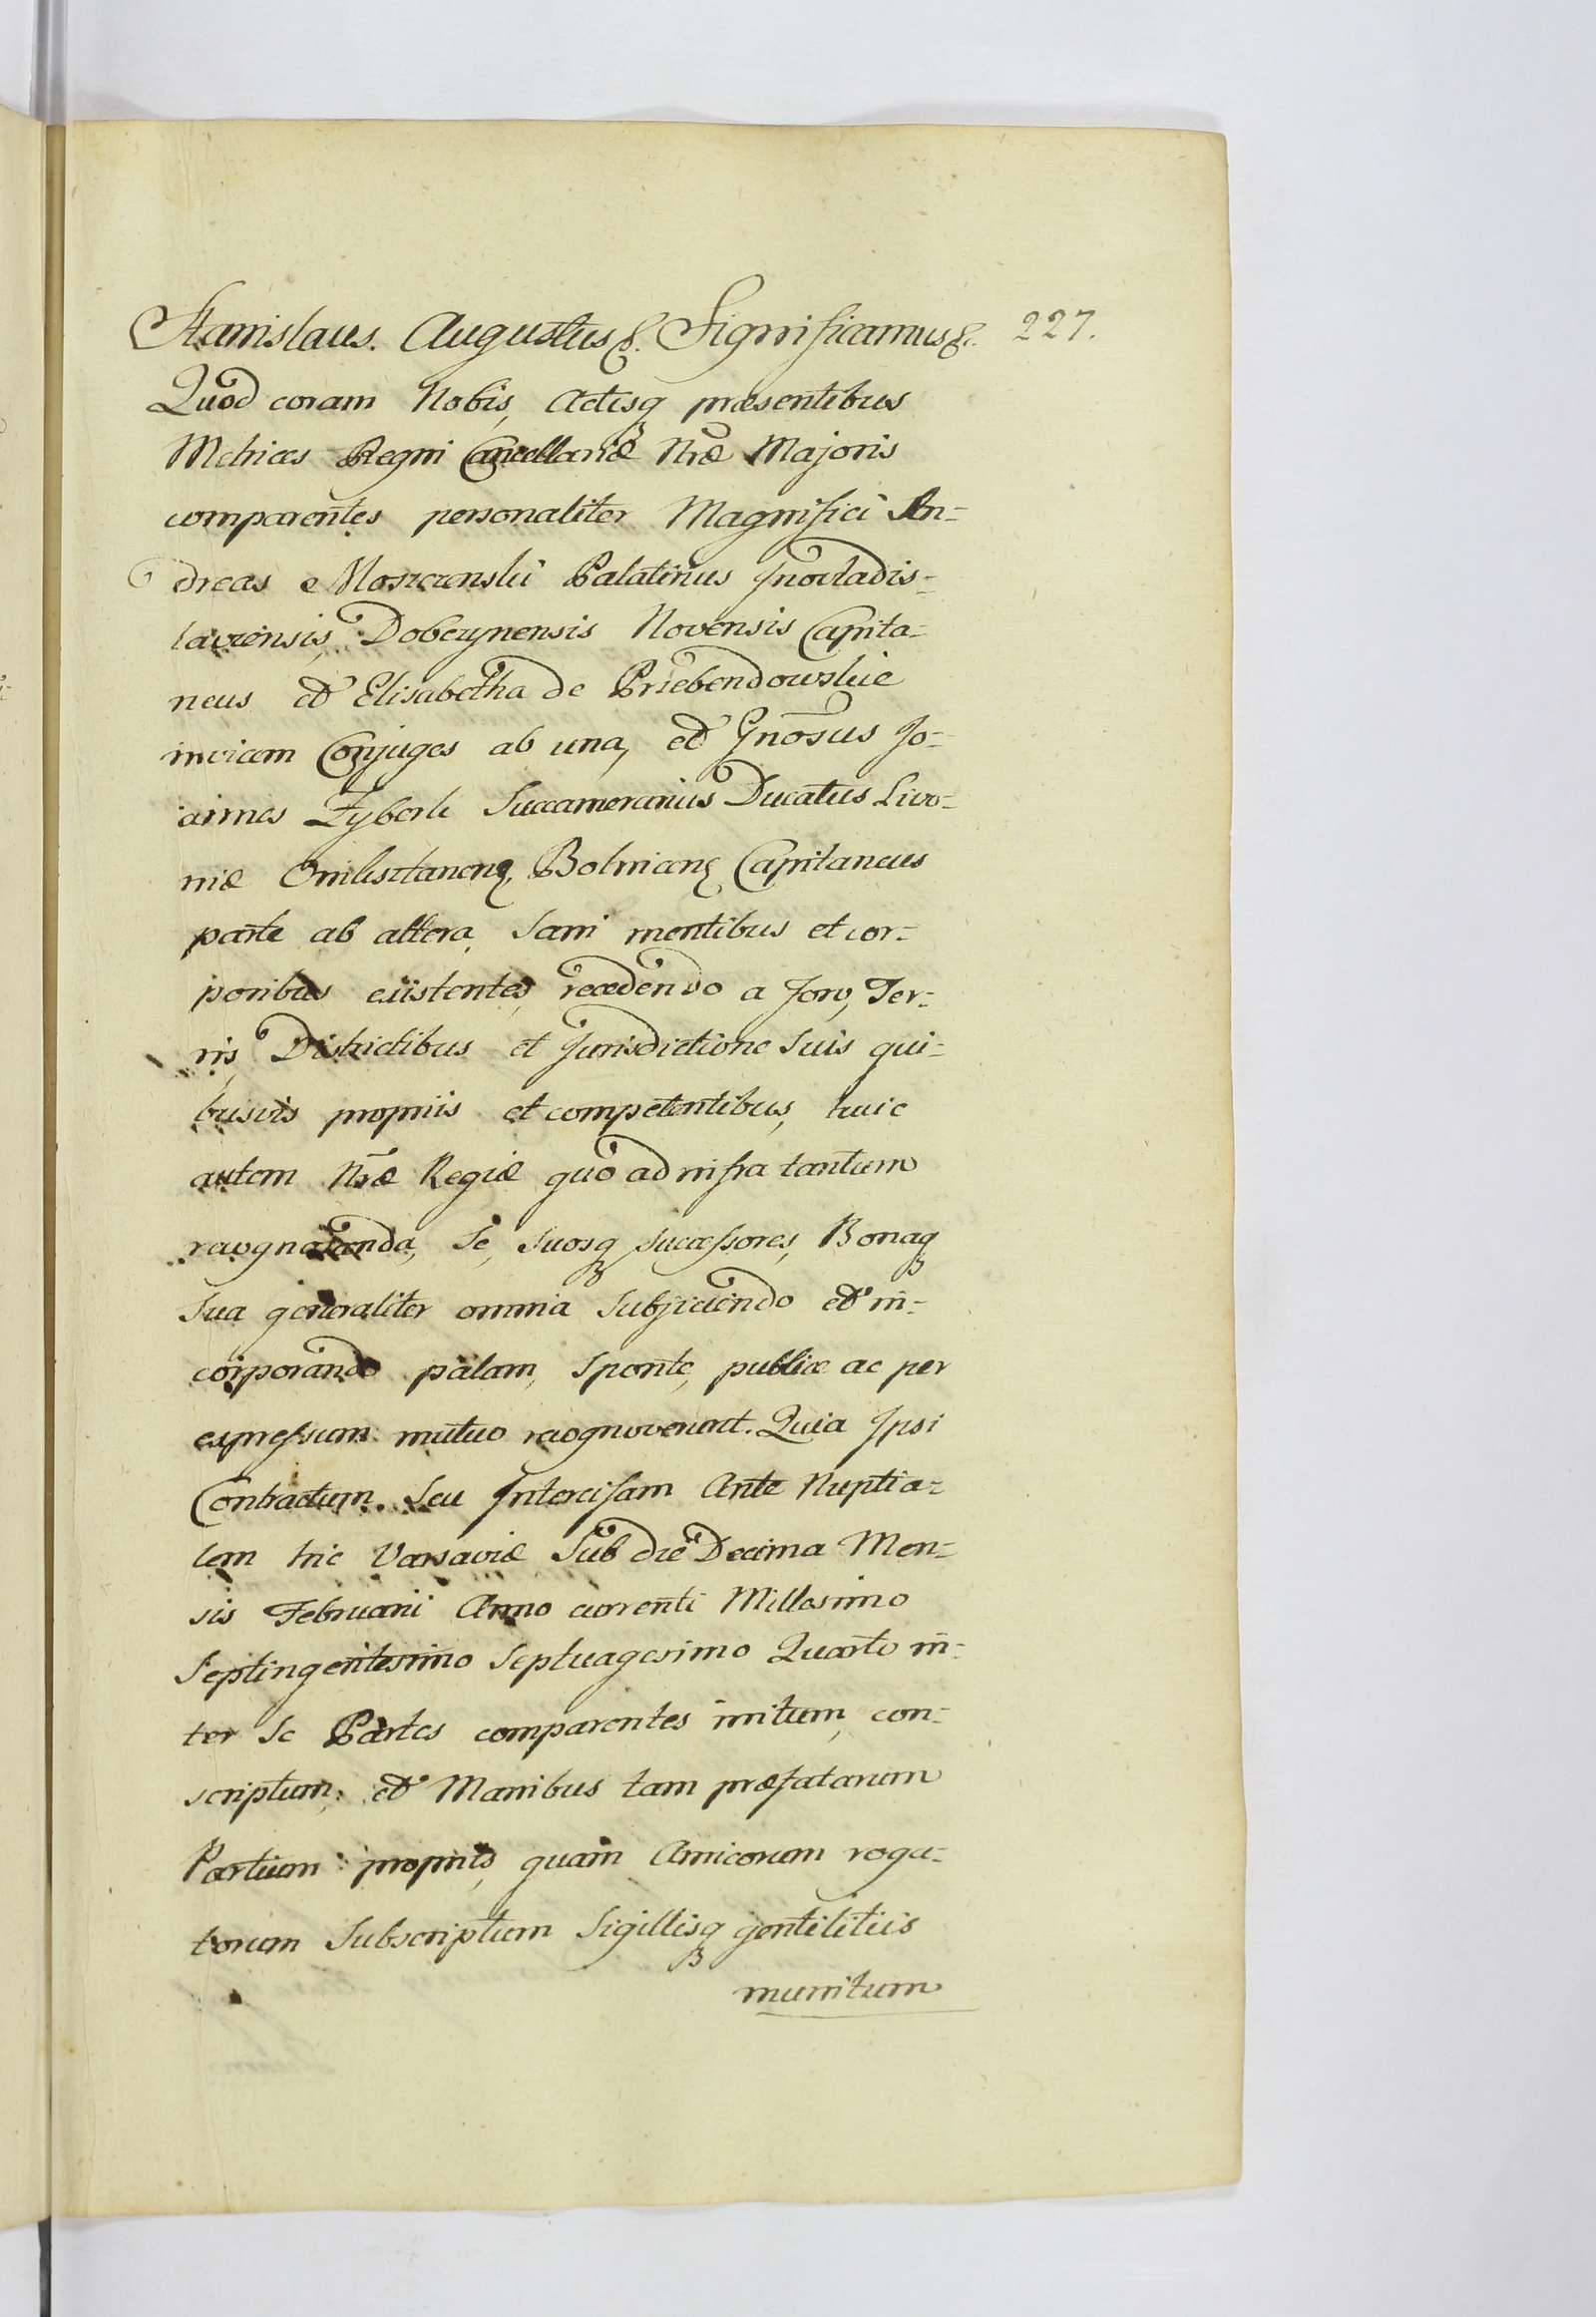 Stanislaus. Augustus &. Significamus &. 227.
Quod coram Nobis, Actisq₃ præsentibus
Metrices Regni Cancellariæ Nræ Majoris
comparentes personaliter Magnifici An=
dreas e Moszczenskii Palatinus Jnovladis=
laviensis, Dobrzynensis Novensis Capita=
neus et Elisabetha de Przebendowskie
invicem Conjuges ab una, et Gnosus Jo=
annes Zyberk Succamerarius Ducatus Livo=
niæ Bolnicens Capitaneus
parte ab altera, Sani mentibus et cor=
poribus existentes, recedendo a Foro, Ter=
ris, Districtibus et Jurisdictione Suis qui=
busvis propriis et competentibus, huic
autem Nræ Regiæ quo ad infra tantum
recognoscenda, Se, Suosq₃ Successores, Bonaq₃
Sua generaliter omnia Subjiciendo et in=
corporando palam, Sponte, publice ac per
expressum mutuo recognoverunt. Quia Jpsi
Contractum Seu Jntercisam Ante Nuptia=
lem hic Varsaviæ Sub die Decima Men=
sis Februarii Anno currenti Millesimo
Septingentesimo Septuagesimo Quarto in=
ter Se Partes comparentes initum, con=
scriptum, et Manibus tam præfatarum
Partium propriis, quam Amicorum roga=
torum Subscriptum Sigillisq₃ gentilitiis
munitum